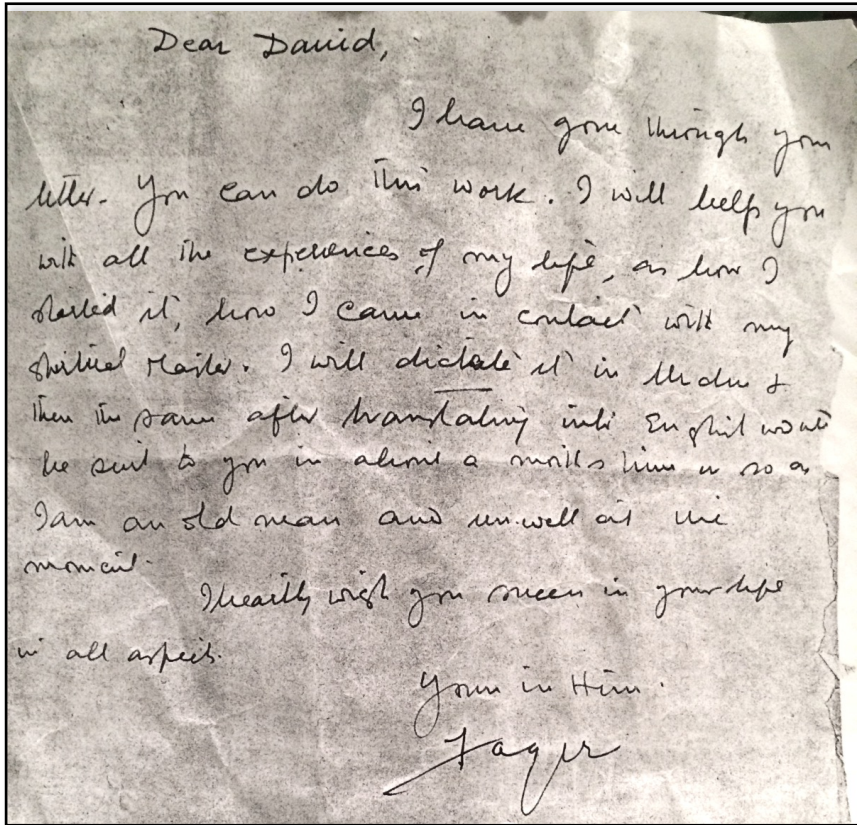 Dear David,
I have gone through your
letter. You can do this work. I will help you
with all the experiences of my life, as how I
started it, how I came in contact with my
spiritual Master. I will dictate it in Urdu &
then the same after translating into English would
be sent to you in about a months time or so as
I am an old man and unwell at the
moment.
I heartily wish you success in your life
in all aspects.
Yours in Him.
Faqir